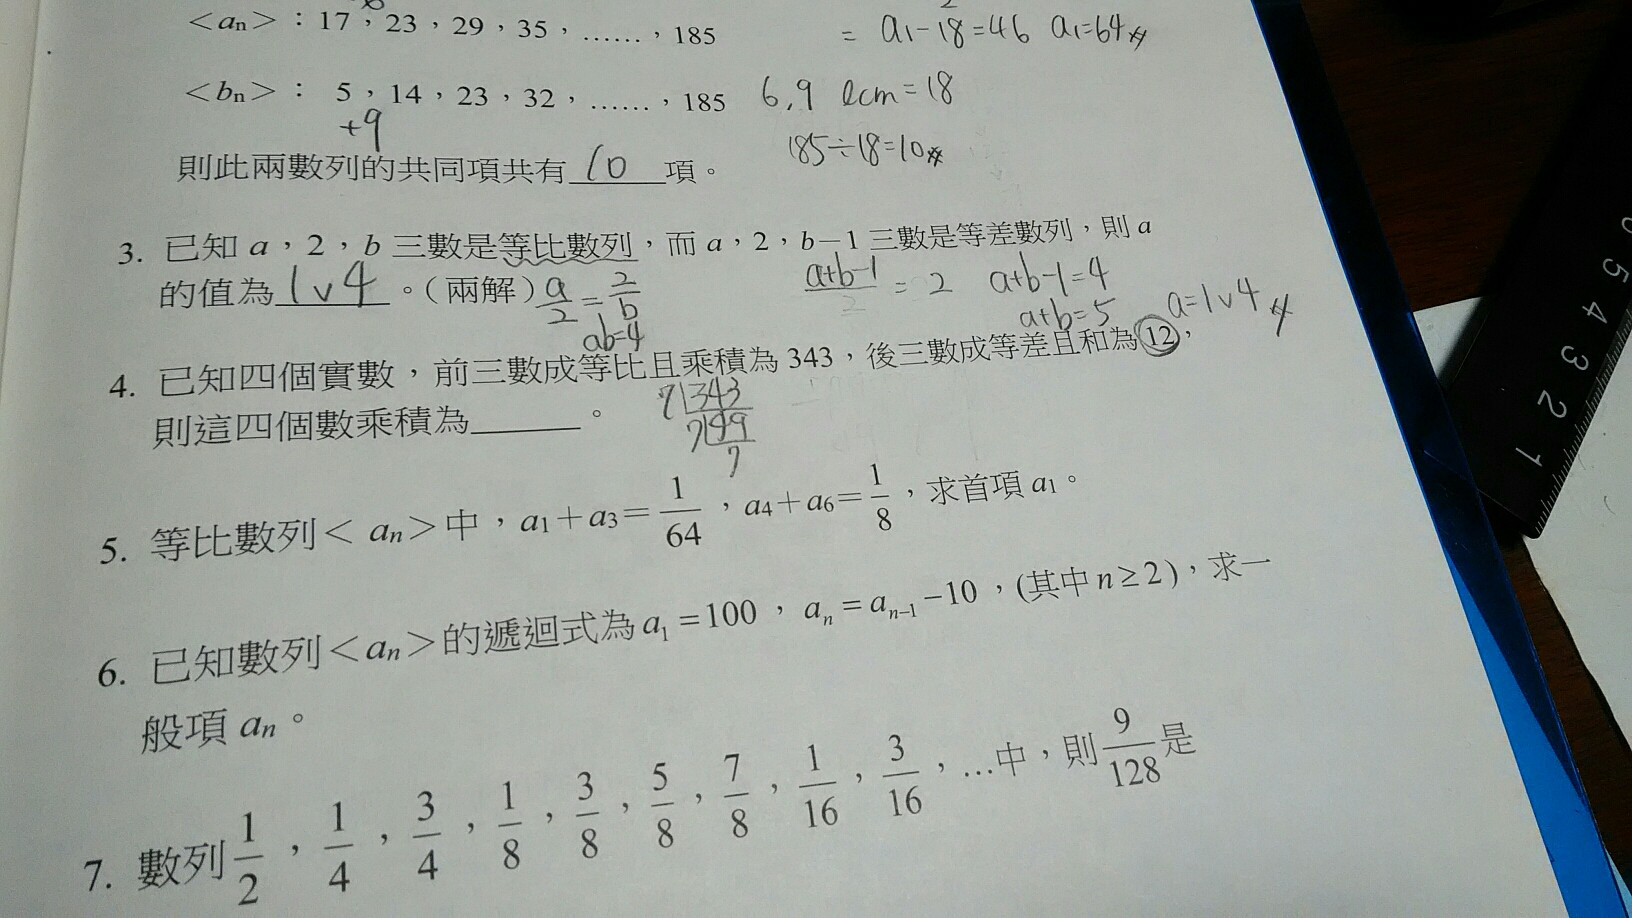 <an>：17，23，29，35，……，185
= a1-18=46 a1=64
<bn>： 5，14，23，32，……，185
+9
6,9 lcm=18
185÷18=10
則此兩數列的共同項共有 10 項。
3. 已知 a，2，b 三數是等比數列，而 a，2，b－1 三數是等差數列，則 a
的值為 1∨4 。（兩解）
a/2 = 2/b
ab=4
(a+b-1)/2 = 2 a+b-1=4
a+b=5 a=1∨4
4. 已知四個實數，前三數成等比且乘積為 343，後三數成等差且和為 12，
則這四個數乘積為______。
7|343
7|49
7
5. 等比數列< an>中，a1＋a3＝1/64，a4＋a6＝1/8，求首項 a1。
6. 已知數列<an>的遞迴式為 a1=100，an=an-1-10，(其中 n≥2)，求一
般項 an。
7. 數列 1/2，1/4，3/4，1/8，3/8，5/8，7/8，1/16，3/16，…中，則 9/128 是
5 4 3 2 1